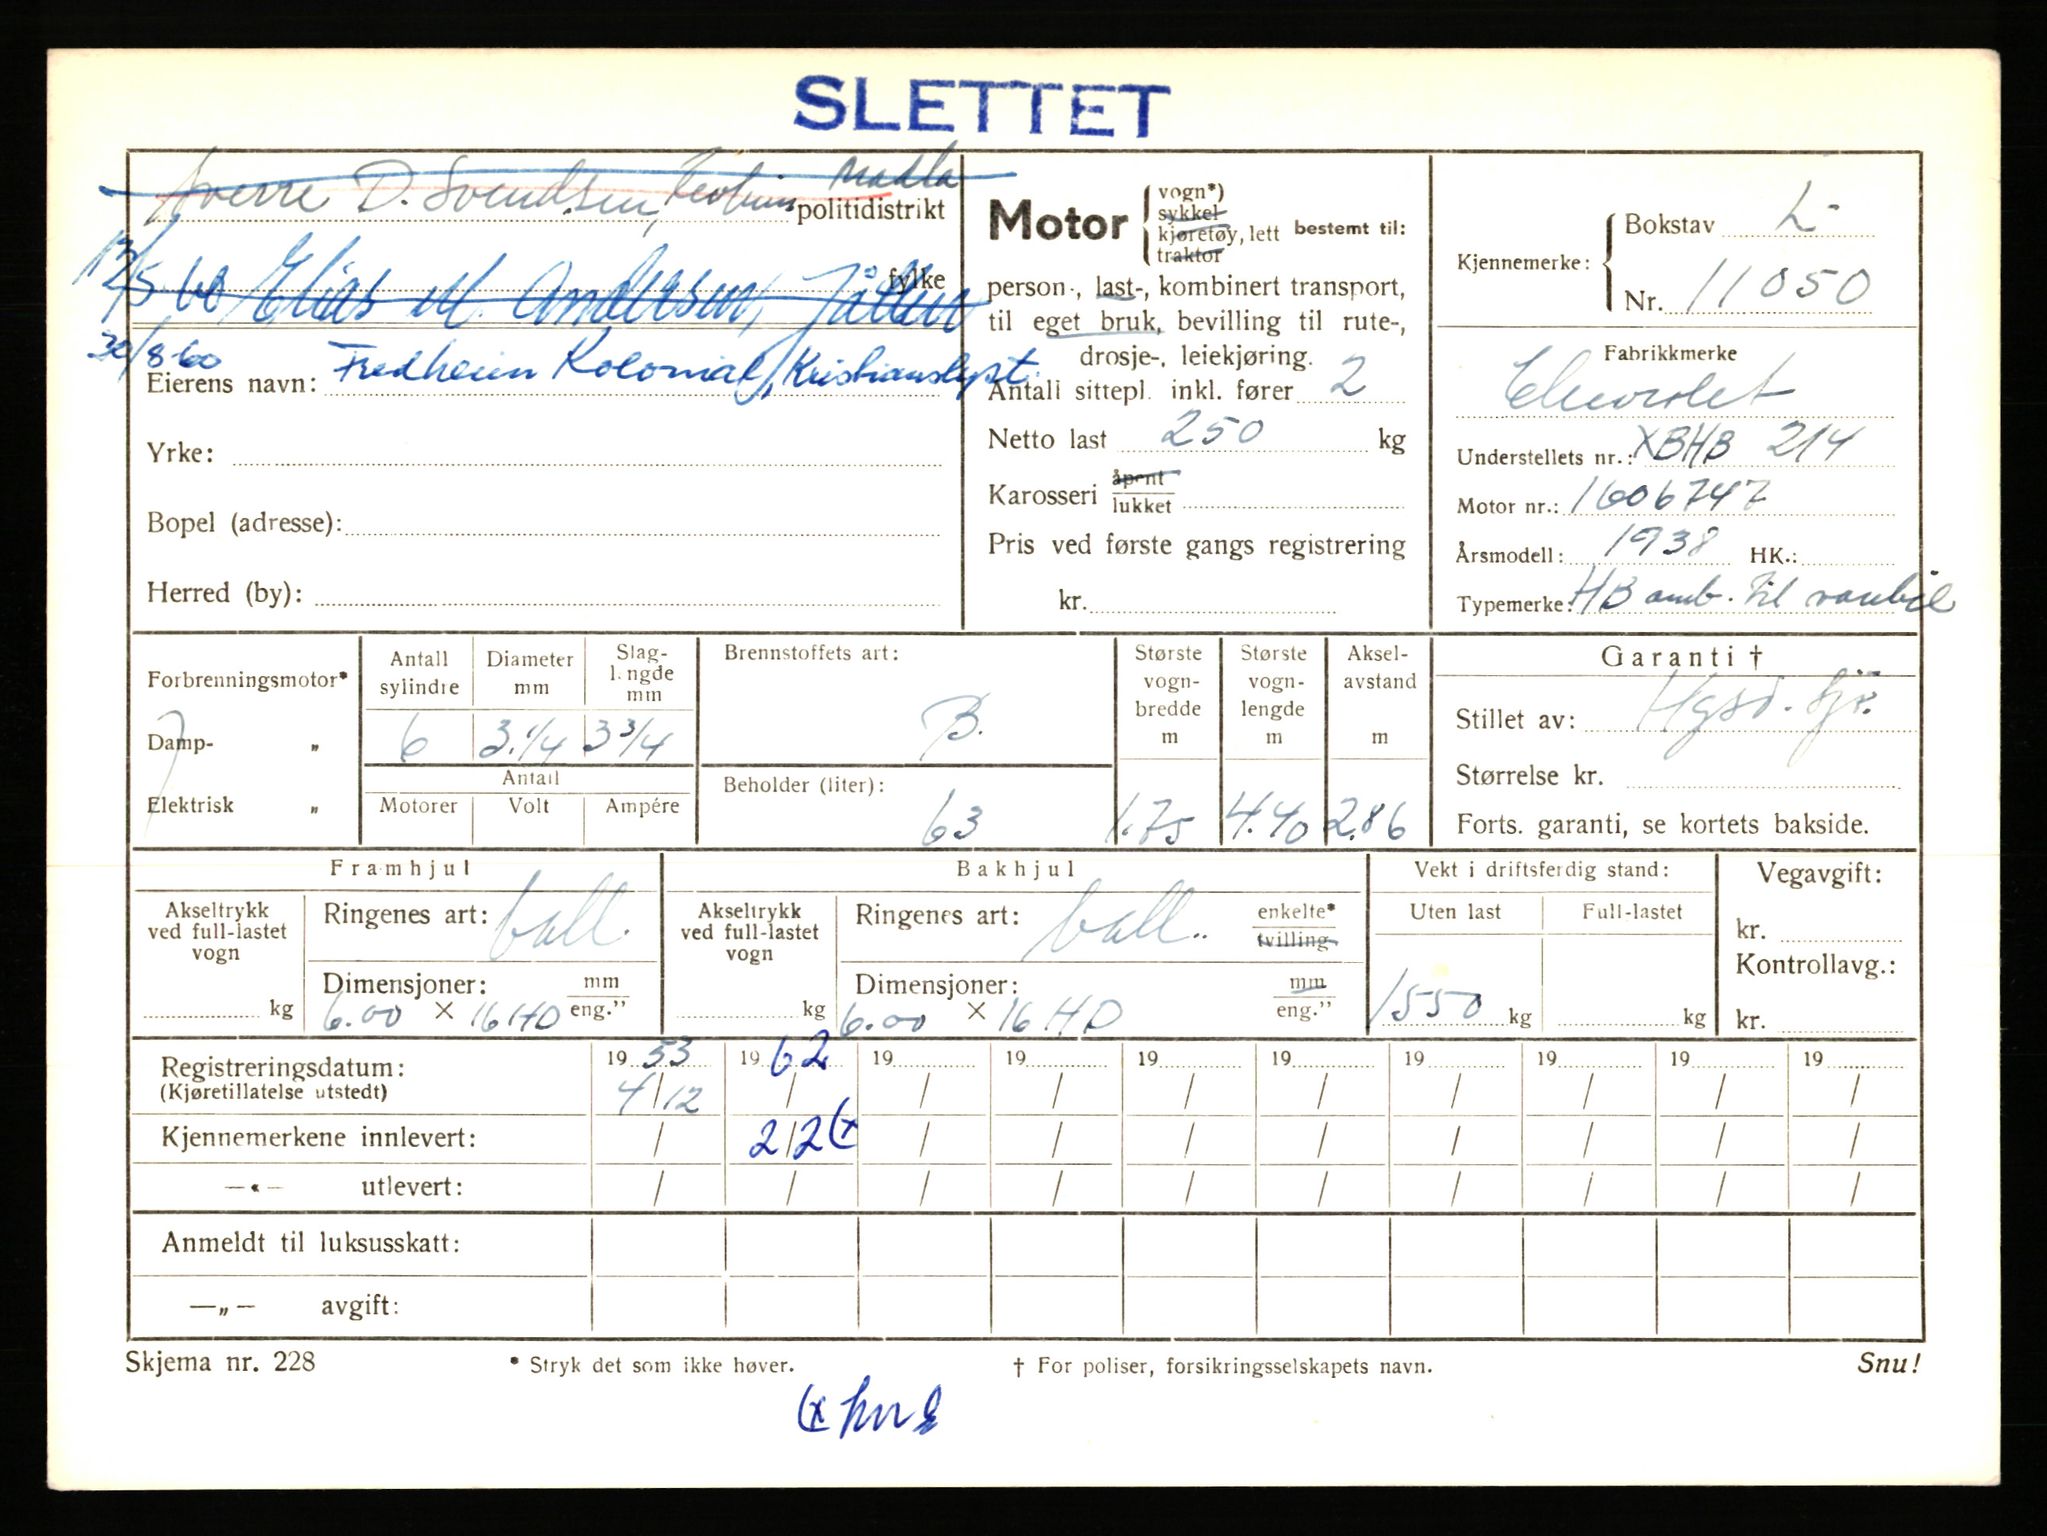 SLETTET
Sverre D. Svendsen, Madla
politidistrikt
17/5 60 Elias M. Andersen, Jåtten
fylke
30/8-60
Eierens navn: Fredheim Kolonial, Kristianslyst.
Yrke:
Bopel (adresse):
Herred (by):
Motor
vogn*)
sykkel
kjøretøy, lett bestemt til:
traktor
person-, last-, kombinert transport,
til eget bruk, bevilling til rute-,
drosje-, leiekjøring.
Antall sittepl. inkl. fører 2
Netto last 250 kg
Karosseri åpent
lukket
Pris ved første gangs registrering
kr.
Kjennemerke: Bokstav L-
Nr. 11050
Fabrikkmerke
Chevrolet
Understellets nr.: XBHB 214
Motor nr.: 1606747
Årsmodell: 1938 HK.:
Typemerke: HB omb. til varebil
Forbrenningsmotor*
Damp- „
Elektrisk „
Antall sylindre Diameter mm Slag-l.ngde mm
6 3.1/4 3 3/4
Antall
Motorer Volt Ampére
Brennstoffets art:
B.
Beholder (liter):
63
Største vogn-bredde m Største vogn-lengde m Aksel-avstand m
1.75 4.40 2.86
Garanti †
Stillet av:
Størrelse kr.
Forts. garanti, se kortets bakside.
Framhjul
Akseltrykk ved full-lastet vogn
kg
Ringenes art: ball.
Dimensjoner: mm
6.00 × 16 HD eng.”
Bakhjul
Akseltrykk ved full-lastet vogn
kg
Ringenes art: ball.. enkelte*
tvilling
Dimensjoner: mm
6.00 × 16 HD eng.”
Vekt i driftsferdig stand:
Uten last Full-lastet
1550 kg kg
Vegavgift:
kr.
Kontrollavg.:
kr.
Registreringsdatum: 19 53 19 62 19 19 19 19 19 19 19 19
(Kjøretillatelse utstedt) 4/12 / / / / / / / / /
Kjennemerkene innlevert: / 2/2 (x / / / / / / / /
—«— utlevert: / / / / / / / / / /
Anmeldt til luksusskatt:
—„— avgift:
Skjema nr. 228 * Stryk det som ikke høver. † For poliser, forsikringsselskapets navn. Snu!
(x